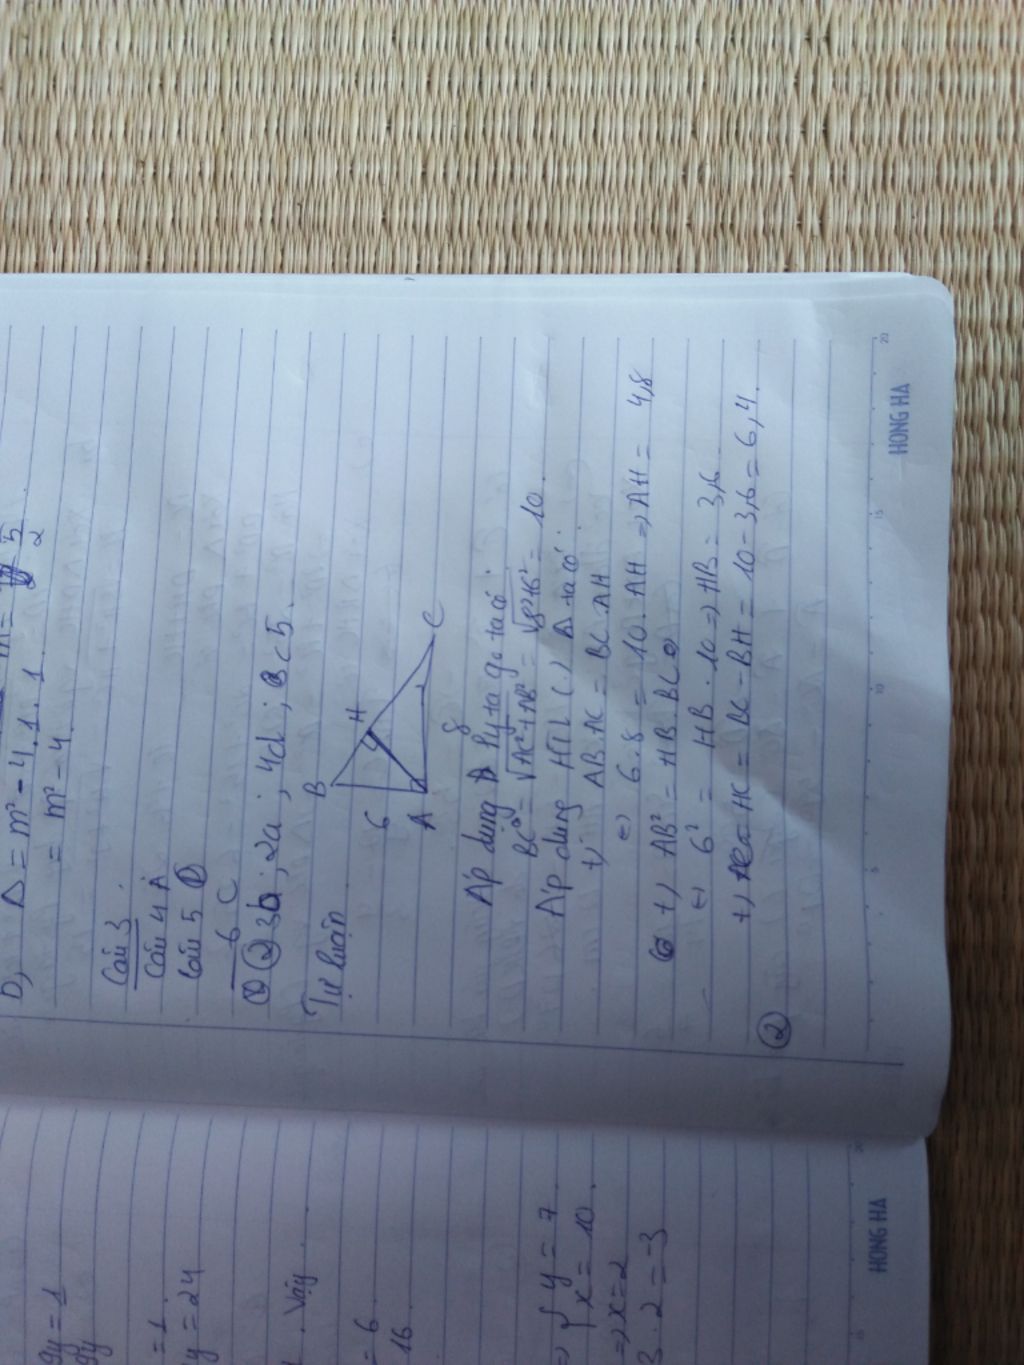 D) Δ = m² - 4.1.1
= m² - 4
m = 5/2
Câu 3
Câu 4 A
Câu 5 D
6 C
① ② 3b; 2a; 4d; c5.
Tự luận
B
H
6
A
C
8
Áp dụng Pytago ta có
BC = √AC²+AB² = √8²+6² = 10.
Áp dụng HTL (.) Δ ta có
+, AB.AC = BC.AH
(=) 6.8 = 10.AH => AH = 4,8
+, AB² = HB.BC
(=) 6² = HB.10 => HB = 3,6
+, HC = BC - BH = 10 - 3,6 = 6,4.
②
HONG HA
5
10
15
20
9y = 1
9y
= 1.
y = 24
. Vậy
= 6
16
=> { y = 7
x = 10
=> x = 2
3.2 = -3
HONG HA